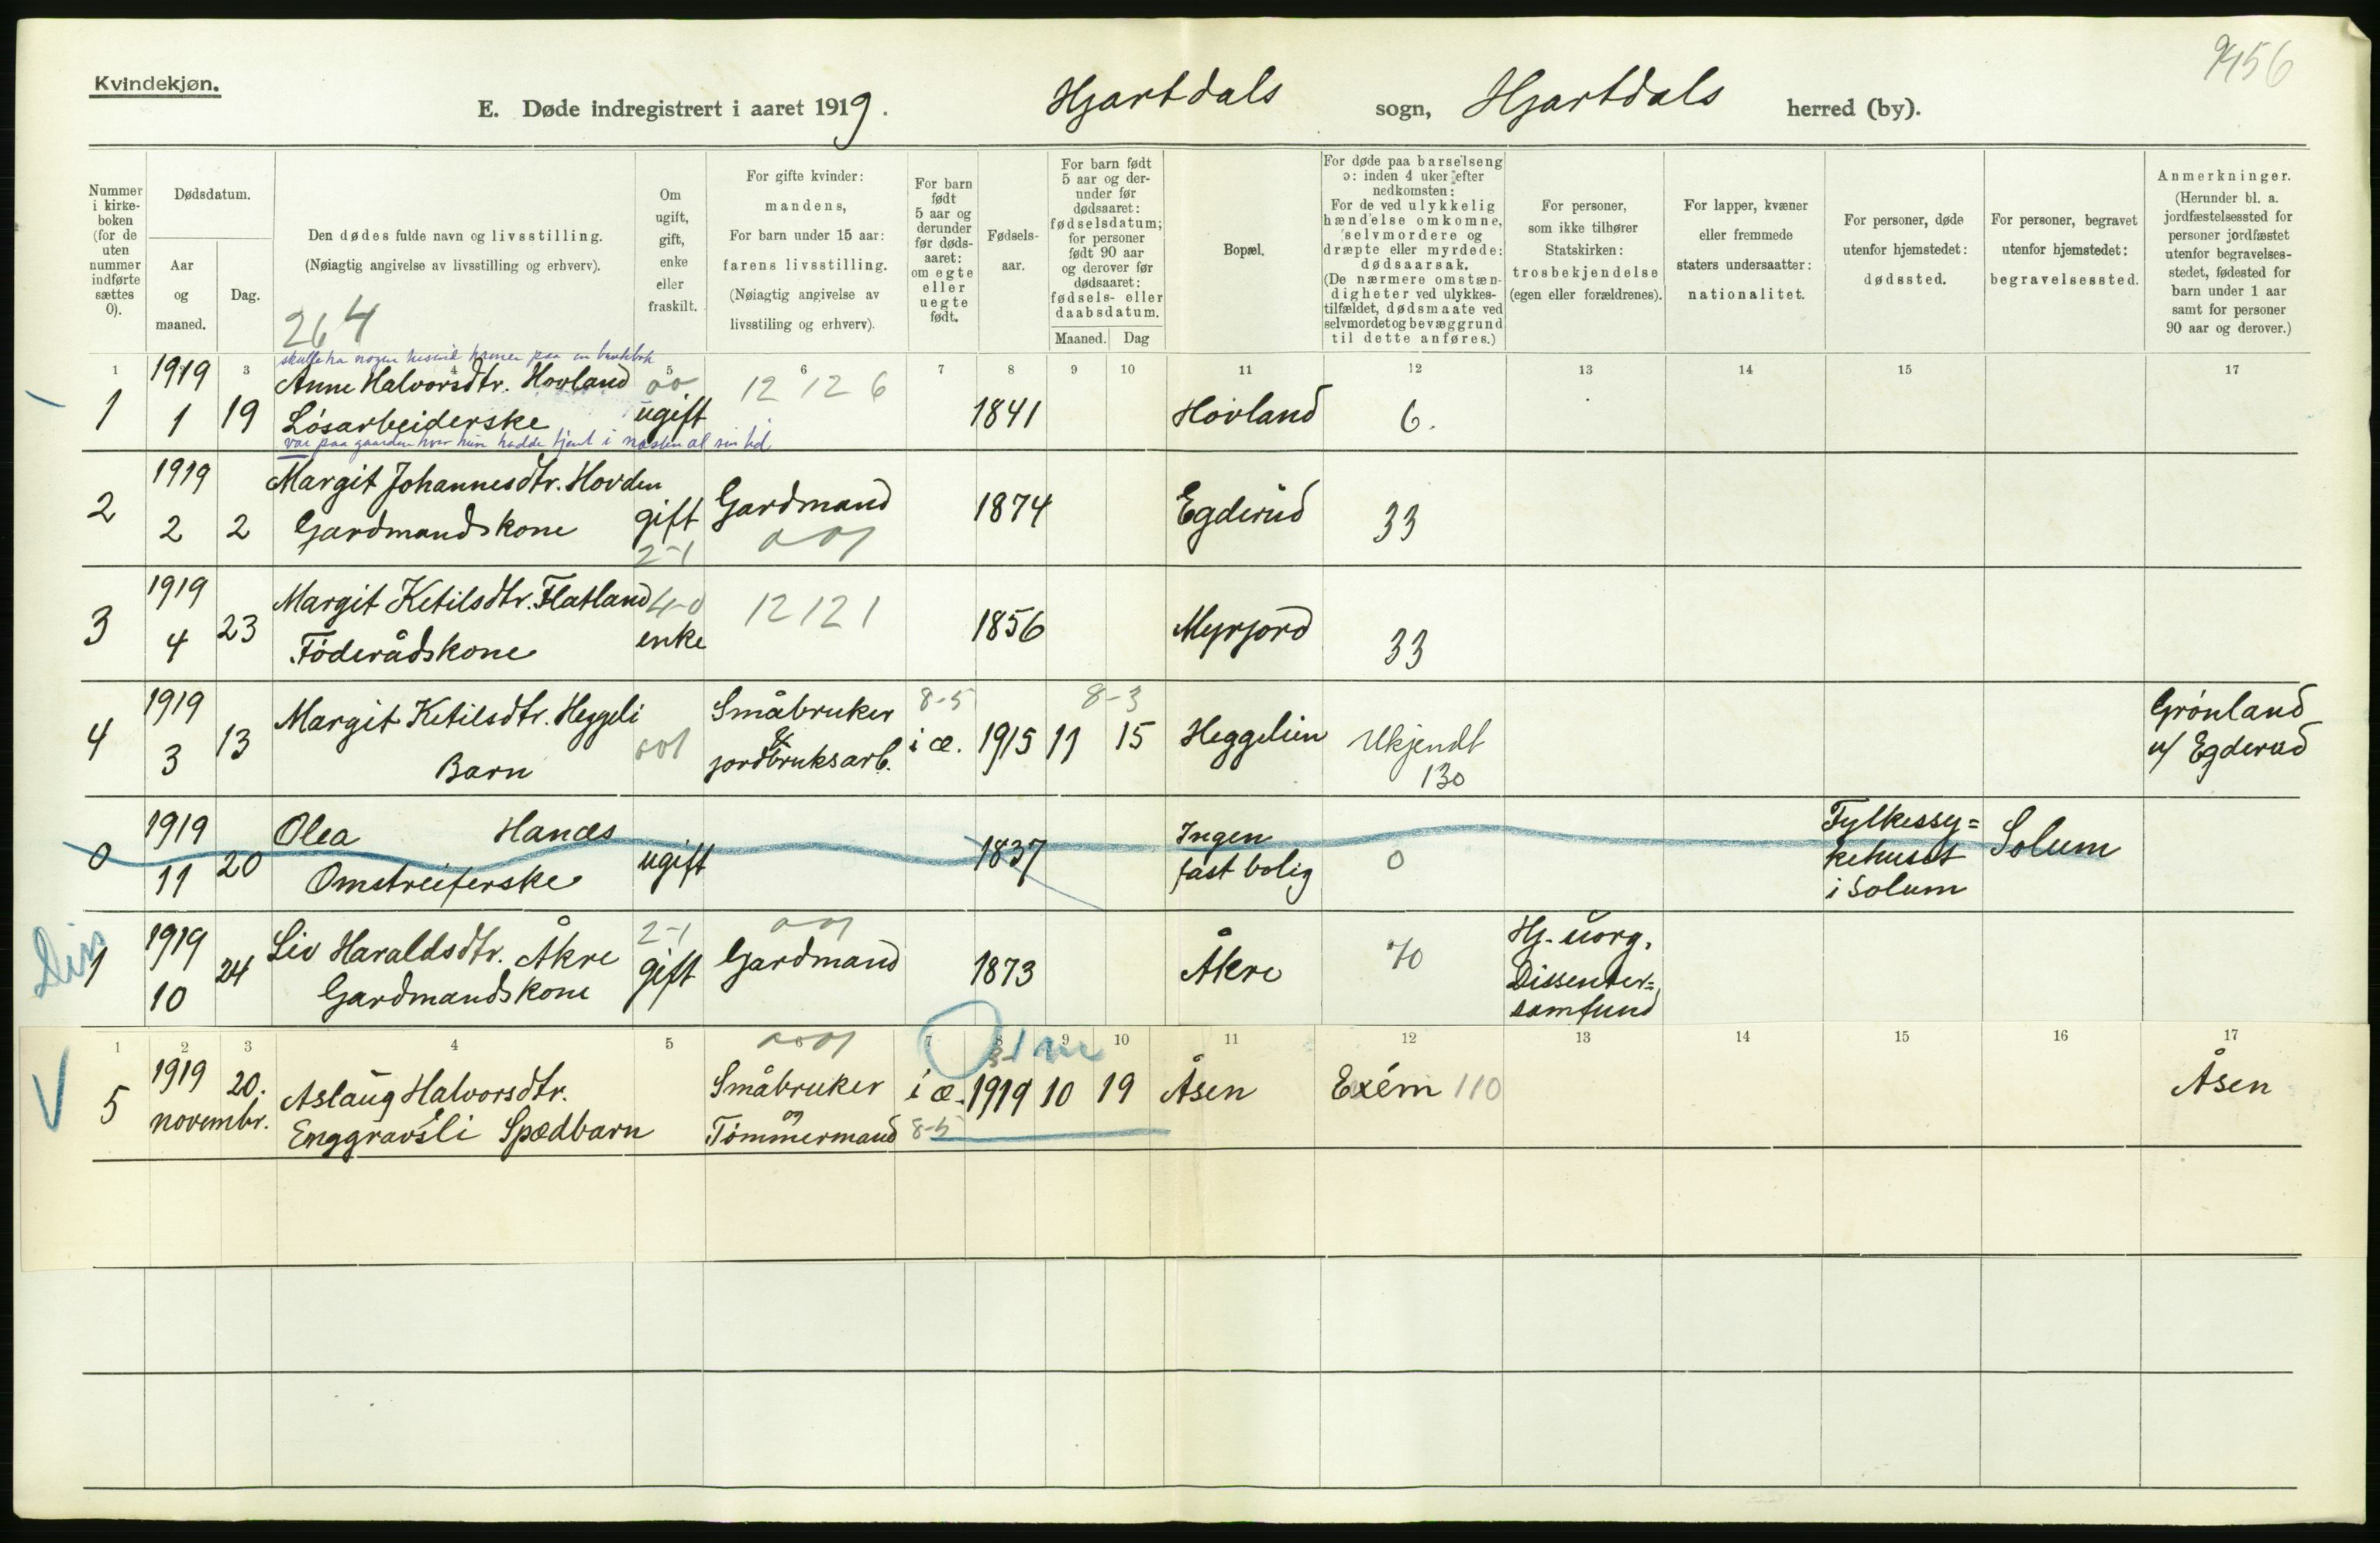 Kvindekjøn.
E. Døde indregistrert i aaret 1919. Hjartdals sogn, Hjartdals herred (by).
Nummer i kirke-boken (for de uten nummer indførte sættes 0).
Dødsdatum.
Aar og maaned.
Dag.
Den dødes fulde navn og livsstilling.
(Nøiagtig angivelse av livsstilling og erhverv).
264
Om ugift, gift, enke eller fraskilt.
For gifte kvinder:
mandens,
For barn under 15 aar:
farens livsstilling.
(Nøiagtig angivelse av
livsstiling og erhverv).
For barn født 5 aar og derunder før døds-aaret: om egte eller uegte født.
Fødsels-aar.
For barn født 5 aar og der-under før dødsaaret: fødselsdatum; for personer født 90 aar og derover før dødsaaret: fødsels- eller daabsdatum.
Maaned. Dag
Bopæl.
For døde paa barselseng
ɔ: inden 4 uker efter
nedkomsten:
For de ved ulykkelig
hændelse omkomne,
selvmordere og
dræpte eller myrdede:
dødsaarsak.
(De nærmere omstæn-
digheter ved ulykkes-
tilfældet, dødsmaate ved
selvmordet og bevæggrund
til dette anføres.)
For personer,
som ikke tilhører
Statskirken:
trosbekjendelse
(egen eller forældrenes).
For lapper, kvæner
eller fremmede
staters undersaatter:
nationalitet.
For personer, døde
utenfor hjemstedet:
dødssted.
For personer, begravet
utenfor hjemstedet:
begravelsessted.
Anmerkninger.
(Herunder bl. a.
jordfæstelsessted for
personer jordfæstet
utenfor begravelses-
stedet, fødested for
barn under 1 aar
samt for personer
90 aar og derover.)
1 3 4 5 6 7 8 9 10 11 12 13 14 15 17
skulle ha nogen paa en bankbok
1919 Anne Halvorsdtr. Hovland 12 12 6
1 1 19 Løsarbeiderske ugift 1841 Hovland 6.
var paa gaarden hvor hun hadde tjent i næsten al sin tid
1919 Margit Johannesdtr. Hovden
2 2 2 Gardmandskone gift Gardmand 1874 Egderud 33
2-1
1919 Margit Ketilsdtr. Flatland 4-0 12 12 1
3 4 23 Föderådskone enke 1856 Myrjord 33
1919 Margit Ketilsdtr. Heggeli Småbruker 8-5 8-3 Grönland
4 3 13 Barn & jordbruksarb. i æ. 1915 11 15 Heggelien Ukjendt 130 u/ Egderud
1919 Olea Hanæs Ingen Fylkessy=
0 11 20 Omstreiferske ugift 1837 fast bolig 0 kehuset Solum
i Solum
1919 Liv Haraldsdtr. Åkre 2-1 Hj. uorg.
1 10 24 Gardmandskone gift Gardmand 1873 Åkre 70 Dissenter=
samfund
1 2 3 4 5 6 7 8 9 10 11 12 13 14 15 16 17
1919 20. Aslaug Halvorsdtr. Småbruker i æ. 1919 10 19 Åsen Exém 110 Åsen
5 novembr. Enggravsli Spædbarn og Tömmermand 8-5